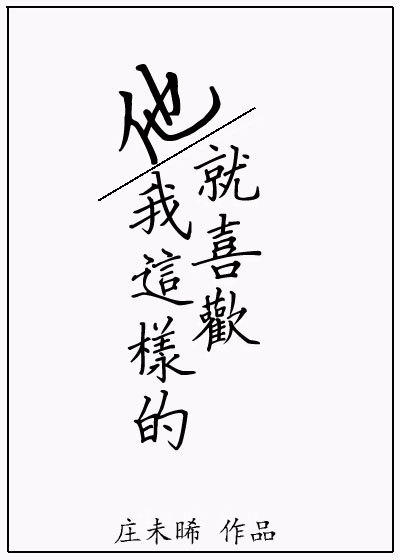 他
就喜歡
我這樣的
庄未晞 作品